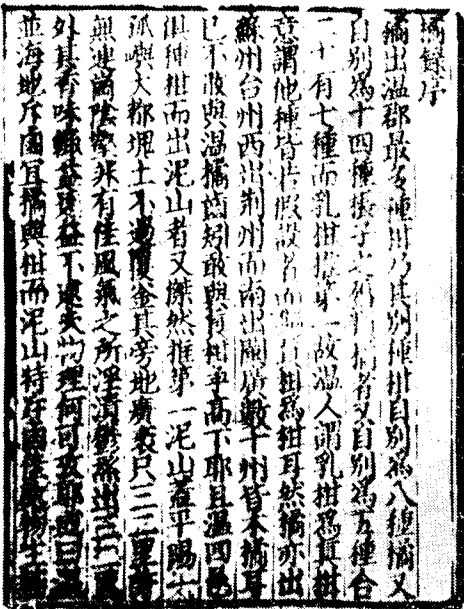 橘錄序
橘出溫郡最多種柑乃其別種柑自別爲八種橘又
自別爲十四種橙子之屬類橘者又自別爲五種合
二十有七種而乳柑推第一故溫人謂乳柑爲真柑
意謂他種皆若假設者而獨真柑爲柑耳然橘亦出
蘇州台州西出荆州而南出閩廣數十州皆木橘耳
已不敢與溫橘齒矧敢與真柑爭高下耶且溫四邑
俱種柑而出泥山者又傑然推第一泥山蓋平陽一
孤嶼大都塊土不過覆釜其旁地廣袤只三二里許
無連岡陰壑非有佳風氣之所淫漬鬱烝出三二里
外其香味輒益遠益不逮夫物理何可考耶或曰溫
並海地斥鹵宜橘與柑而泥山特斥鹵佳處物生其